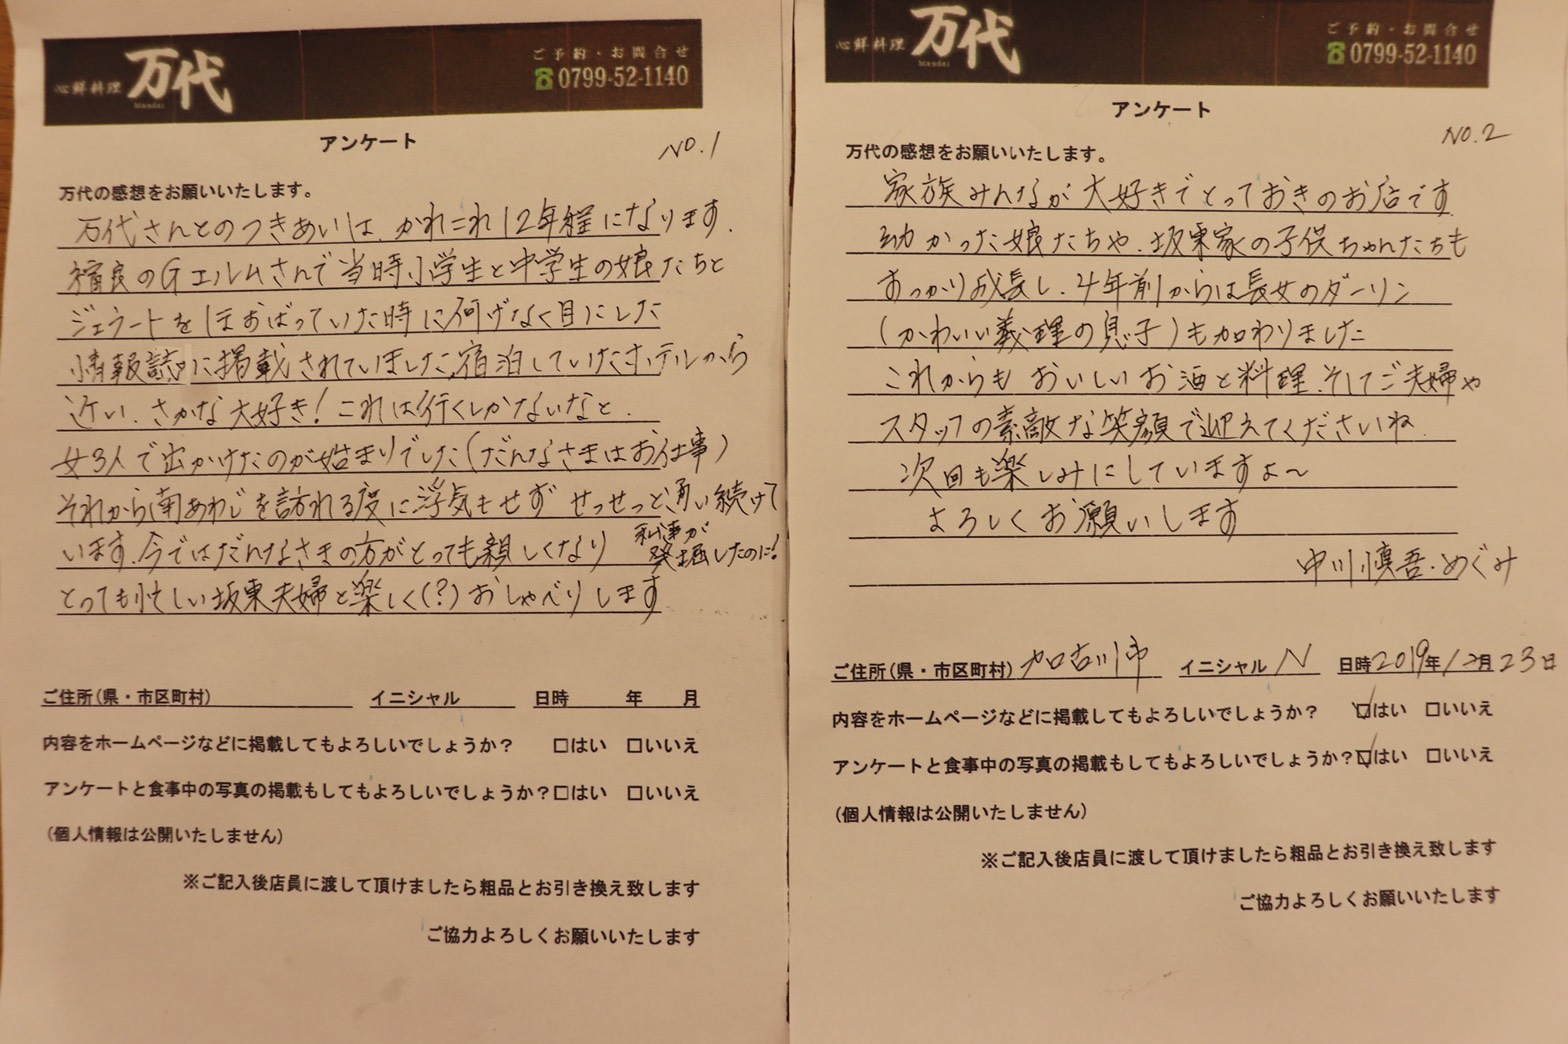 心鮮料理 万代
Mandai
ご予約・お問合せ
☎0799-52-1140
アンケート
NO.1
万代の感想をお願いいたします。
万代さんとのつきあいは、かれこれ12年程になります。
福良のGエルムさんで当時小学生と中学生の娘たちと
ジェラートをほおばっていた時に何げなく目にした
情報誌に掲載されていました。宿泊していたホテルから
近い、さかな大好き!これは行くしかないなと、
女3人で出かけたのが始まりでした(だんなさまはお仕事)
それから南あわじを訪れる度に浮気もせず せっせっと通い続けて
います。今ではだんなさまの方がとっても親しくなり 私達が発掘したのに!
とっても忙しい坂東夫婦と楽しく(?)おしゃべりします
ご住所(県・市区町村) イニシャル 日時 年 月
内容をホームページなどに掲載してもよろしいでしょうか? □はい □いいえ
アンケートと食事中の写真の掲載もしてもよろしいでしょうか?□はい □いいえ
(個人情報は公開いたしません)
※ご記入後店員に渡して頂けましたら粗品とお引き換え致します
ご協力よろしくお願いいたします
心鮮料理 万代
Mandai
ご予約・お問合せ
☎0799-52-1140
アンケート
NO.2
万代の感想をお願いいたします。
家族みんなが大好きでとっておきのお店です。
幼かった娘たちや、坂東家の子供ちゃんたちも
すっかり成長し、4年前からは長女のダーリン
(かわいい義理の息子)も加わりました
これからも おいしいお酒と料理、そしてご夫婦や
スタッフの素敵な笑顔で迎えてくださいね。
次回も楽しみにしていますよ〜
よろしくお願いします
中川慎吾・めぐみ
ご住所(県・市区町村) 加古川市 イニシャル N 日時2019年12月23日
内容をホームページなどに掲載してもよろしいでしょうか? ☑はい □いいえ
アンケートと食事中の写真の掲載もしてもよろしいでしょうか?☑はい □いいえ
(個人情報は公開いたしません)
※ご記入後店員に渡して頂けましたら粗品とお引き換え致します
ご協力よろしくお願いいたします